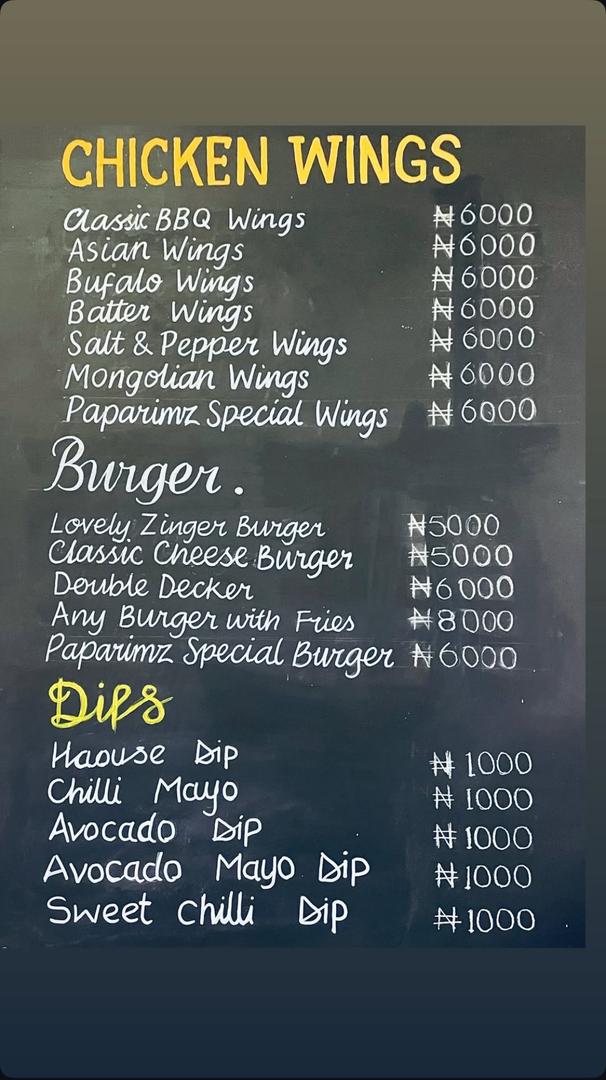 CHICKEN WINGS
Classic BBQ Wings ₦6000
Asian Wings ₦6000
Bufalo Wings ₦6000
Batter Wings ₦6000
Salt & Pepper Wings ₦6000
Mongolian Wings ₦6000
Paparimz Special Wings ₦6000
Burger.
Lovely Zinger Burger ₦5000
Classic Cheese Burger ₦5000
Double Decker ₦6000
Any Burger with Fries ₦8000
Paparimz Special Burger ₦6000
Dips
Haouse Dip ₦1000
Chilli Mayo ₦1000
Avocado Dip ₦1000
Avocado Mayo Dip ₦1000
Sweet Chilli Dip ₦1000